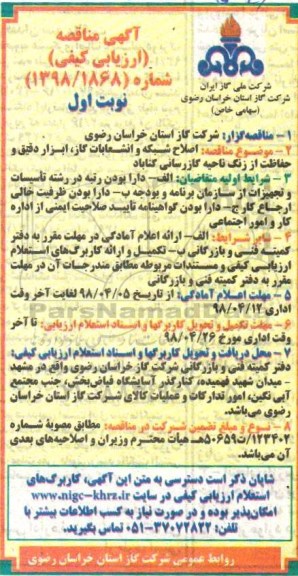 آگهی مناقصه
(ارزیابی کیفی)
شماره (۱۳۹۸/۱۸۶۸)
نوبت اول
شرکت ملی گاز ایران
شرکت گاز استان خراسان رضوی
(سهامی خاص)
۱- مناقصه‌گزار: شرکت گاز استان خراسان رضوی
۲- موضوع مناقصه: اصلاح شبکه و انشعابات گاز، ابزار دقیق و
حفاظت از زنگ ناحیه گازرسانی گناباد
۳- شرایط اولیه متقاضیان: الف- دارا بودن رتبه در رشته تأسیسات
و تجهیزات از سازمان برنامه و بودجه ب- دارا بودن ظرفیت خالی
ارجاع کار ج- دارا بودن گواهینامه تأیید صلاحیت ایمنی از اداره
کار و امور اجتماعی
۴- سایر شرایط: الف- ارائه اعلام آمادگی در مهلت مقرر به دفتر
کمیته فنی و بازرگانی ب- تکمیل و ارائه کاربرگ‌های استعلام
ارزیابی کیفی و مستندات مربوطه مطابق مندرجات آن در مهلت
مقرر به دفتر کمیته فنی و بازرگانی
۵- مهلت اعلام آمادگی: از تاریخ ۹۸/۰۴/۰۵ لغایت آخر وقت
اداری ۹۸/۰۴/۱۲
۶- مهلت تکمیل و تحویل کاربرگها و اسناد استعلام ارزیابی: تا آخر
وقت اداری مورخ ۹۸/۰۴/۲۶
۷- محل دریافت و تحویل کاربرگها و اسناد استعلام ارزیابی کیفی:
دفتر کمیته فنی و بازرگانی شرکت گاز خراسان رضوی واقع در مشهد
- میدان شهید فهمیده، کنارگذر آسایشگاه فیاض‌بخش، جنب مجتمع
آبی تکین، امور تدارکات و عملیات کالای شرکت گاز استان خراسان
رضوی می‌باشد.
۸- نوع و مبلغ تضمین شرکت در مناقصه: مطابق مصوبهٔ شماره
۱۲۳۴۰۲/ت۵۰۶۵۹هـ هیأت محترم وزیران و اصلاحیه‌های بعدی
آن می‌باشد.
شایان ذکر است دسترسی به متن این آگهی، کاربرگ‌های
استعلام ارزیابی کیفی در سایت www.nigc-khrz.ir
امکان‌پذیر بوده و در صورت نیاز به کسب اطلاعات بیشتر با
تلفن: ۳۷۰۷۲۸۲۲-۰۵۱ تماس بگیرید.
روابط عمومی شرکت گاز استان خراسان رضوی